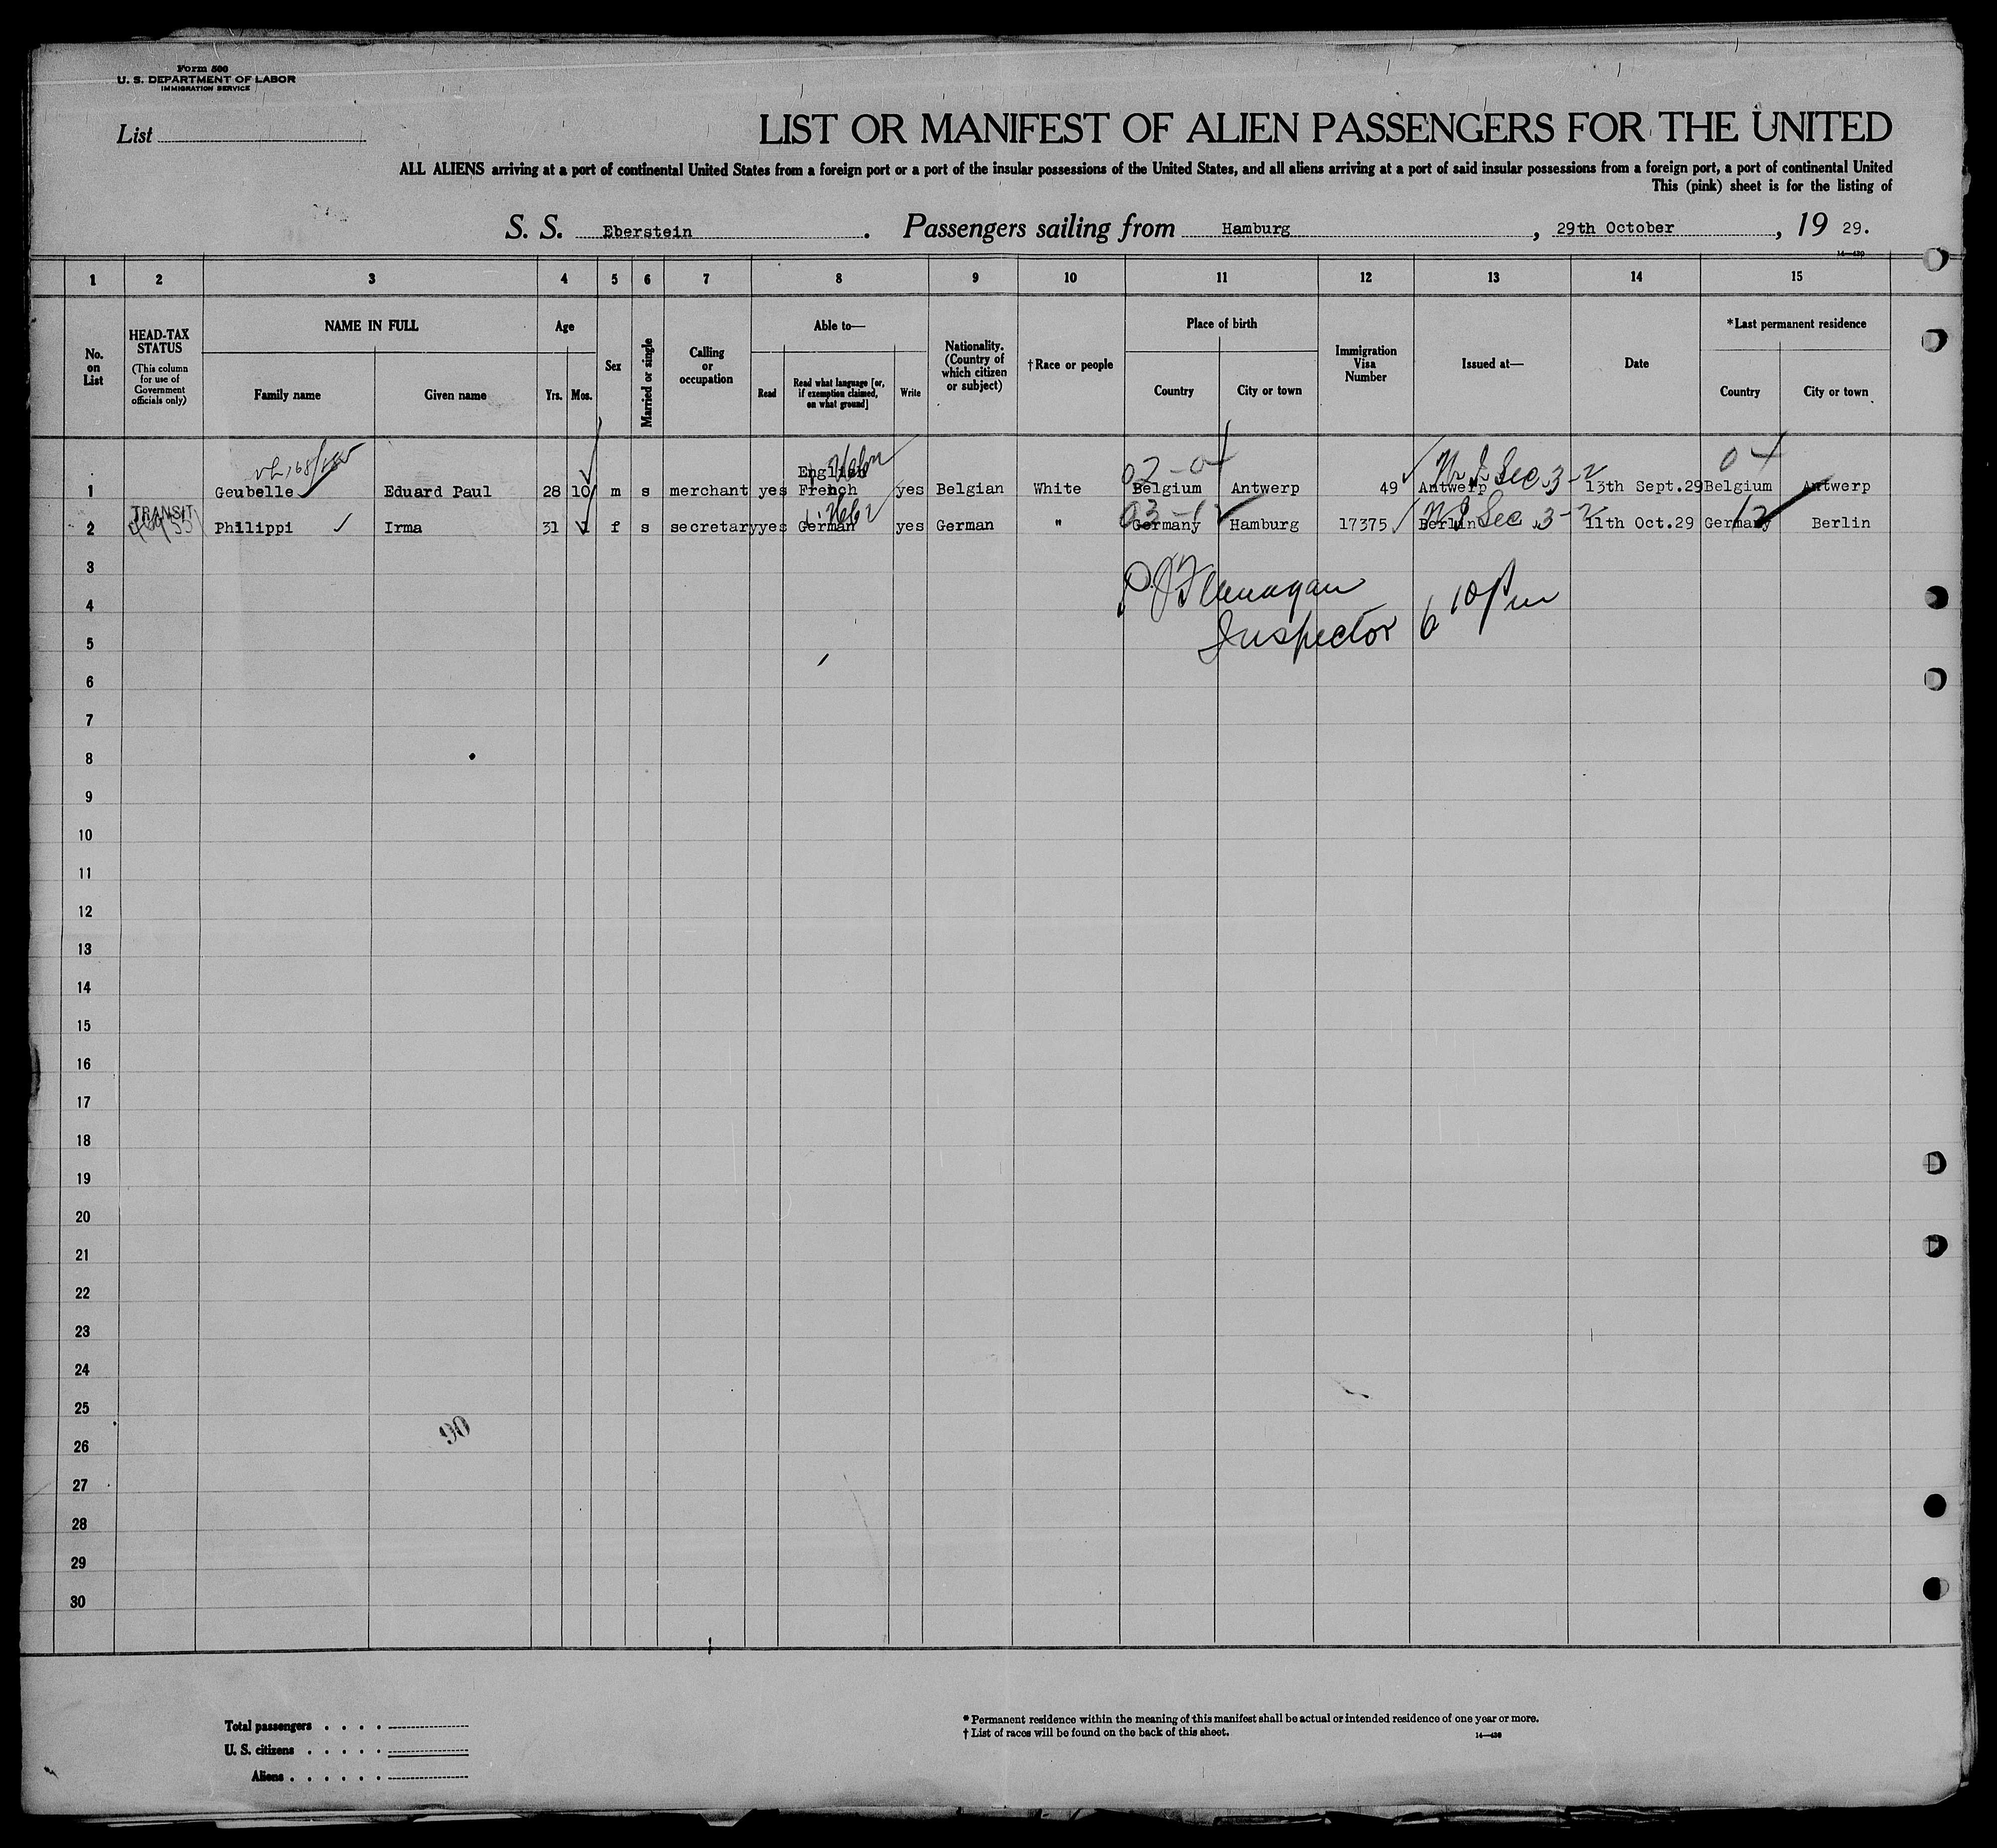 Form 500
U. S. DEPARTMENT OF LABOR
IMMIGRATION SERVICE
List
LIST OR MANIFEST OF ALIEN PASSENGERS FOR THE UNITED
ALL ALIENS arriving at a port of continental United States from a foreign port or a port of the insular possessions of the United States, and all aliens arriving at a port of said insular possessions from a foreign port, a port of continental United
This (pink) sheet is for the listing of
S. S. Eberstein. Passengers sailing from Hamburg, 29th October, 19 29.
14—430
1 2 3 4 5 6 7 8 9 10 11 12 13 14 15
No. on List
HEAD-TAX STATUS
(This column for use of Government officials only)
NAME IN FULL
Family name Given name
Age
Yrs. Mos.
Sex
Married or single
Calling or occupation
Able to—
Read
Read what language [or, if exemption claimed, on what ground]
Write
Nationality. (Country of which citizen or subject)
†Race or people
Place of birth
Country City or town
Immigration Visa Number
Issued at—
Date
*Last permanent residence
Country City or town
02-04 04
English
1 Geubelle Eduard Paul 28 10 m s merchant yes French yes Belgian White Belgium Antwerp 49 Antwerp Sec 3-2 13th Sept.29 Belgium Antwerp
TRANSIT
2 Philippi Irma 31 1 f s secretary yes German yes German " 03-12 Germany Hamburg 17375 Berlin Sec 3-2 11th Oct.29 Germany 12 Berlin
3
P. J. Flanagan
4
Inspector 6 10 pm
5
6
7
8
9
10
11
12
13
14
15
16
17
18
19
20
21
22
23
24
25
90
26
27
28
29
30
Total passengers . . . .
U. S. citizens . . . . .
Aliens . . . . . .
* Permanent residence within the meaning of this manifest shall be actual or intended residence of one year or more.
† List of races will be found on the back of this sheet.
14—430